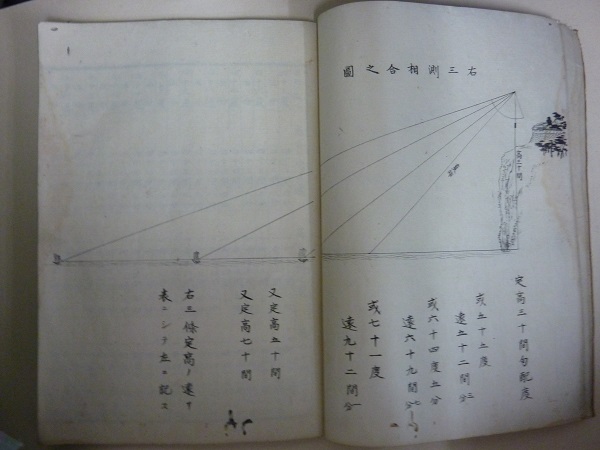 右三測相合之圖
高三十間
定高三十間勾配度
或五十五度
遠五十二間二分
或六十四度五分
遠六十九間七分
或七十一度
遠九十二間一分
又定高五十間
又定高七十間
右三條定高ノ遠サ
表ニシテ左ニ記ス